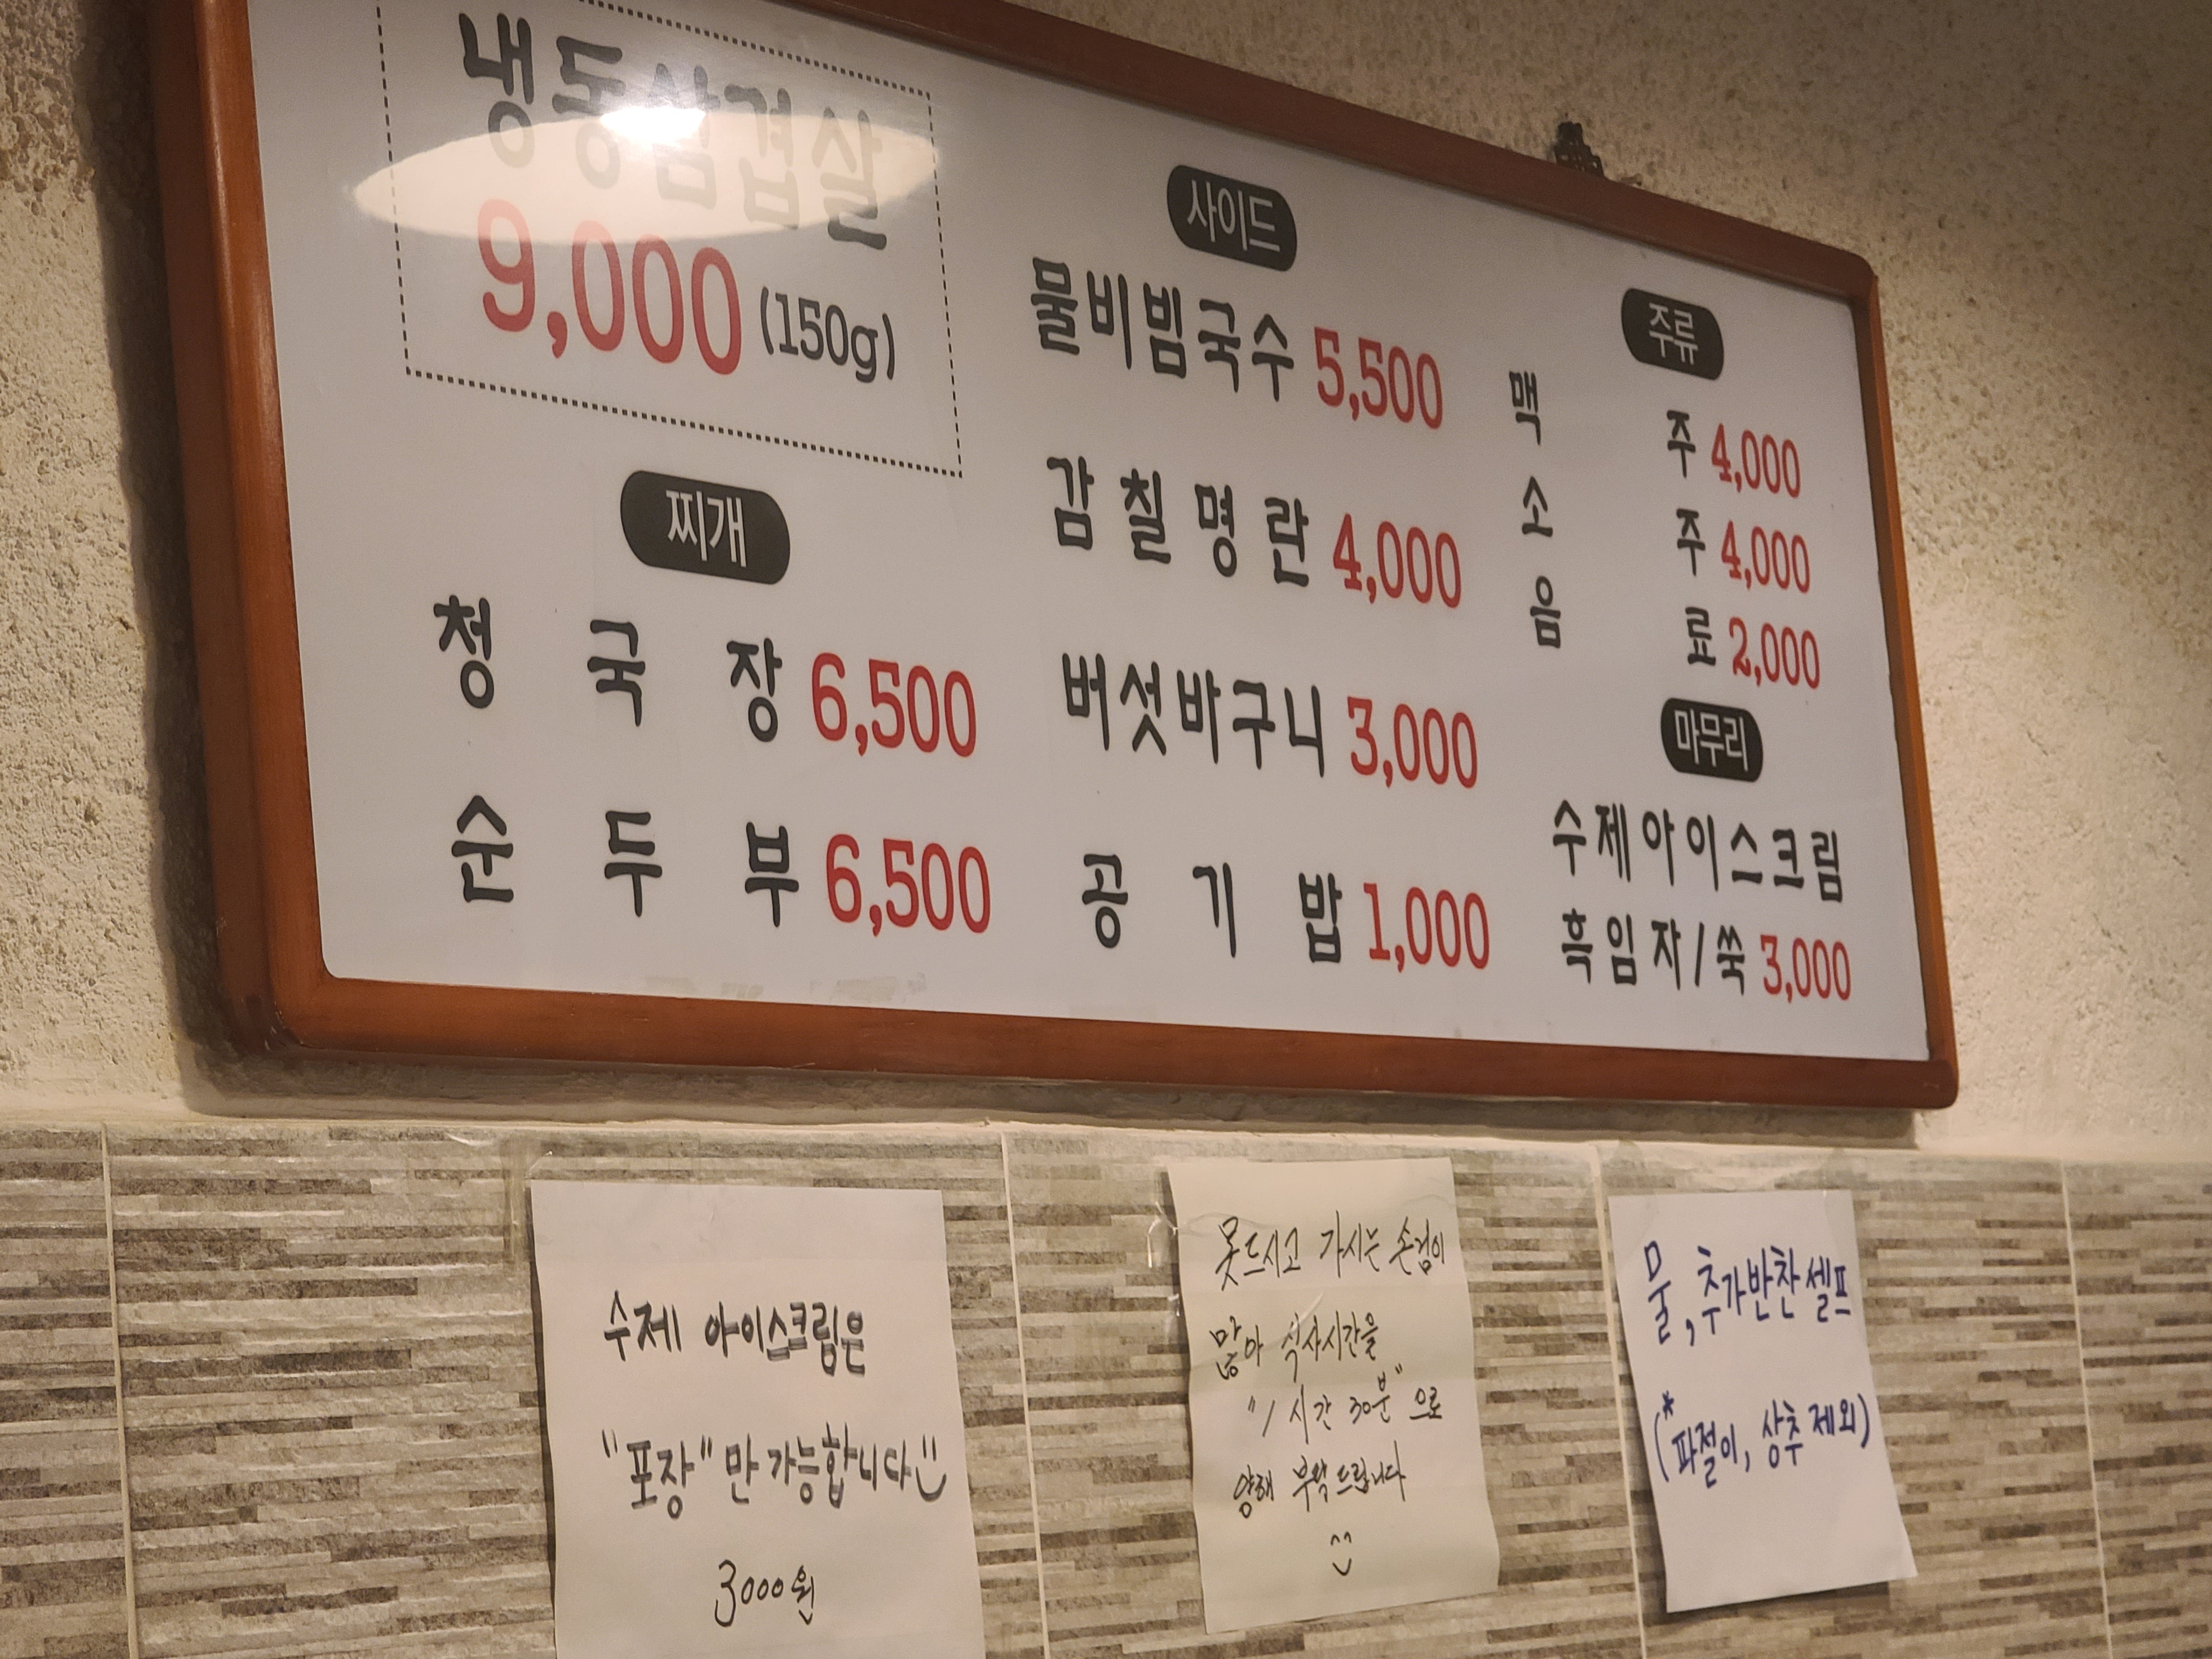 냉동삼겹살
9,000 (150g)
찌개
청국장 6,500
순두부 6,500
사이드
물비빔국수 5,500
감칠명란 4,000
버섯바구니 3,000
공기밥 1,000
주류
맥주 4,000
소주 4,000
음료 2,000
마무리
수제아이스크림
흑임자/쑥 3,000
수제 아이스크림은
"포장"만 가능합니다
3000원
못드시고 가시는 손님이
많아 식사시간을
"1시간 30분"으로
양해 부탁드립니다
^^
물, 추가반찬 셀프
(*파절이, 상추 제외)